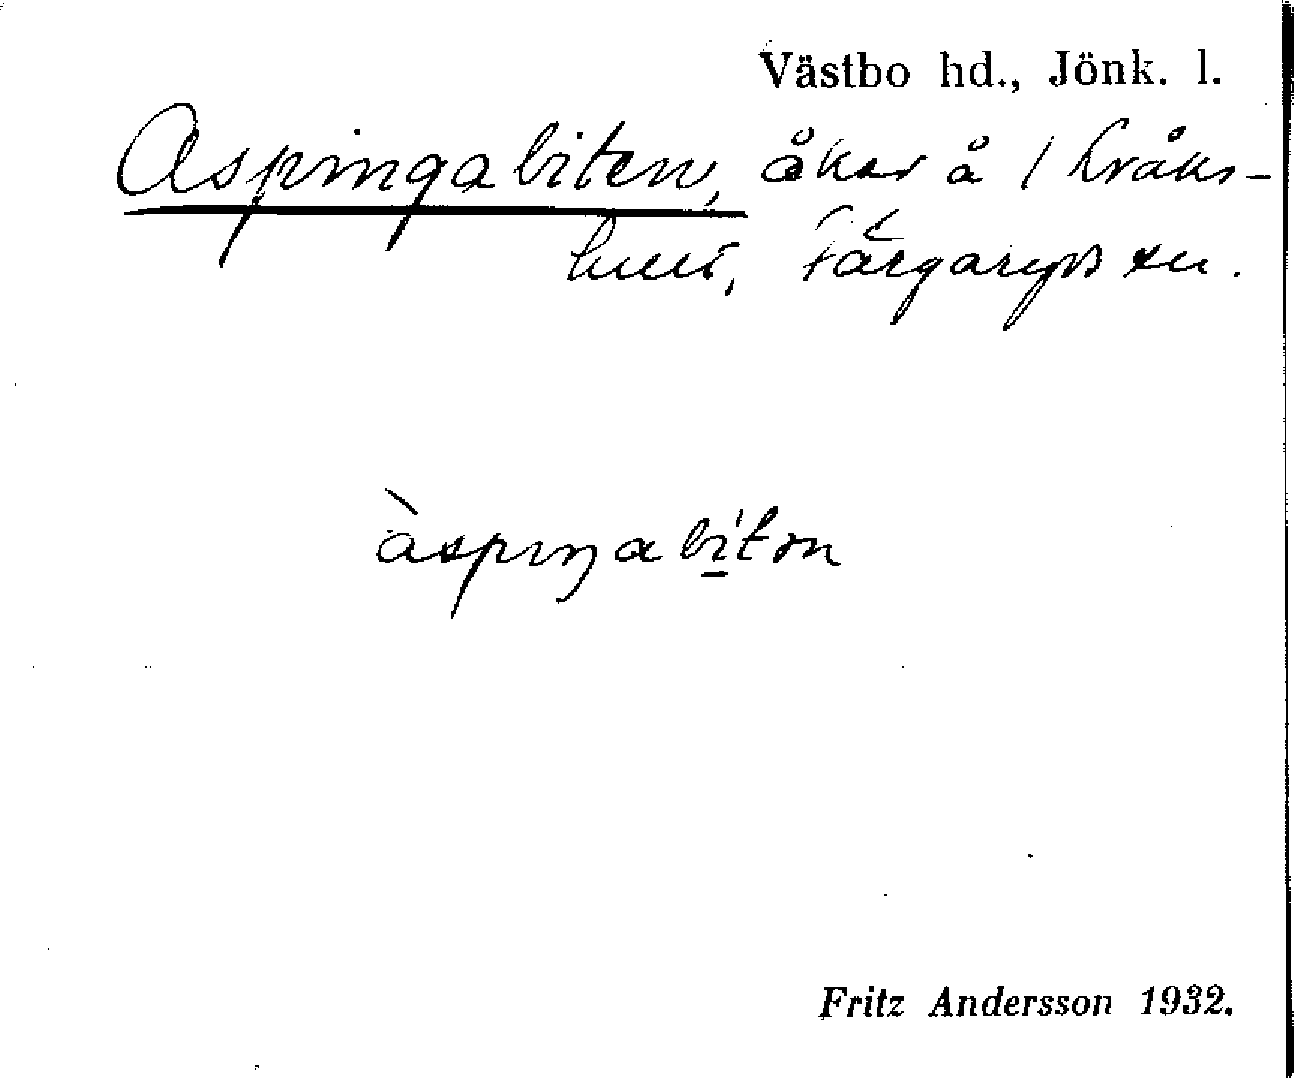 Västbo hd., Jönk. l.
Aspingabiten, åker å 1 Kråks-
hult, Färgaryds sn.
àspiŋabitən
Fritz Andersson 1932.